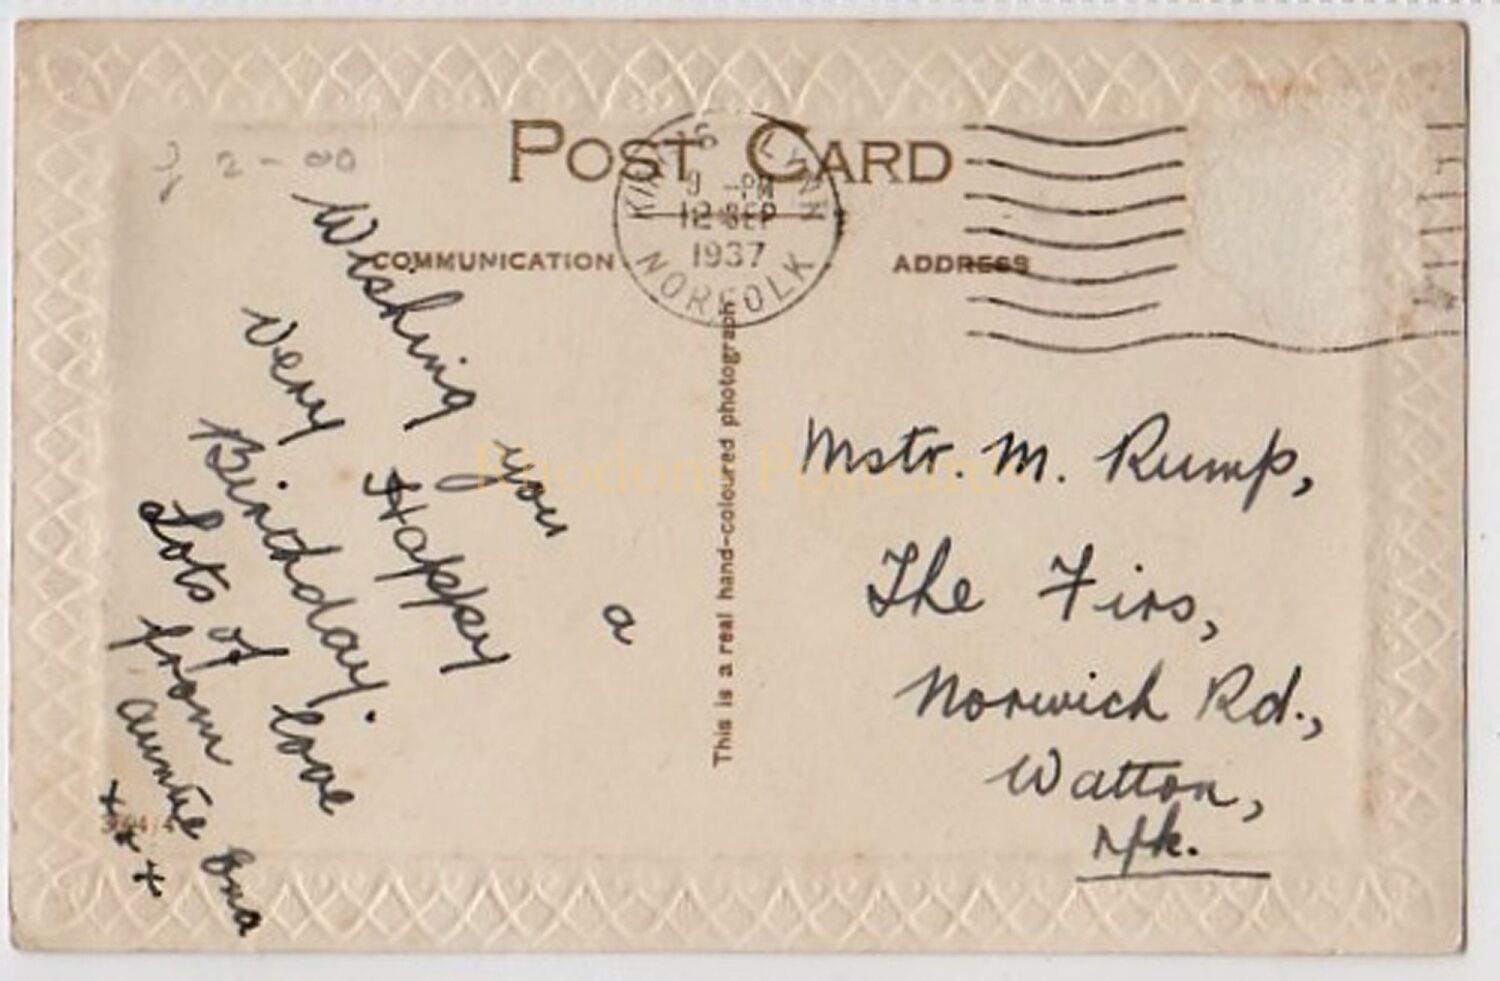 POST CARD
KING'S LYNN
9 - PM
12 SEP
1937
NORFOLK
COMMUNICATION
ADDRESS
2-00
Wishing you a
very Happy
Birthday.
Lots of love
from
Auntie Ena
x x x
This is a real hand-coloured photograph
Mstr. M. Rump,
The Firs,
Norwich Rd.,
Watton,
Nfk.
Rhodons Postcards